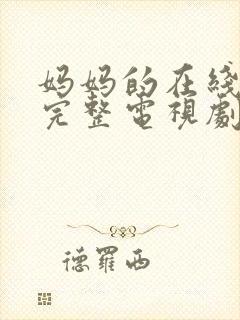 妈妈的在线
完整电視劇
德羅西